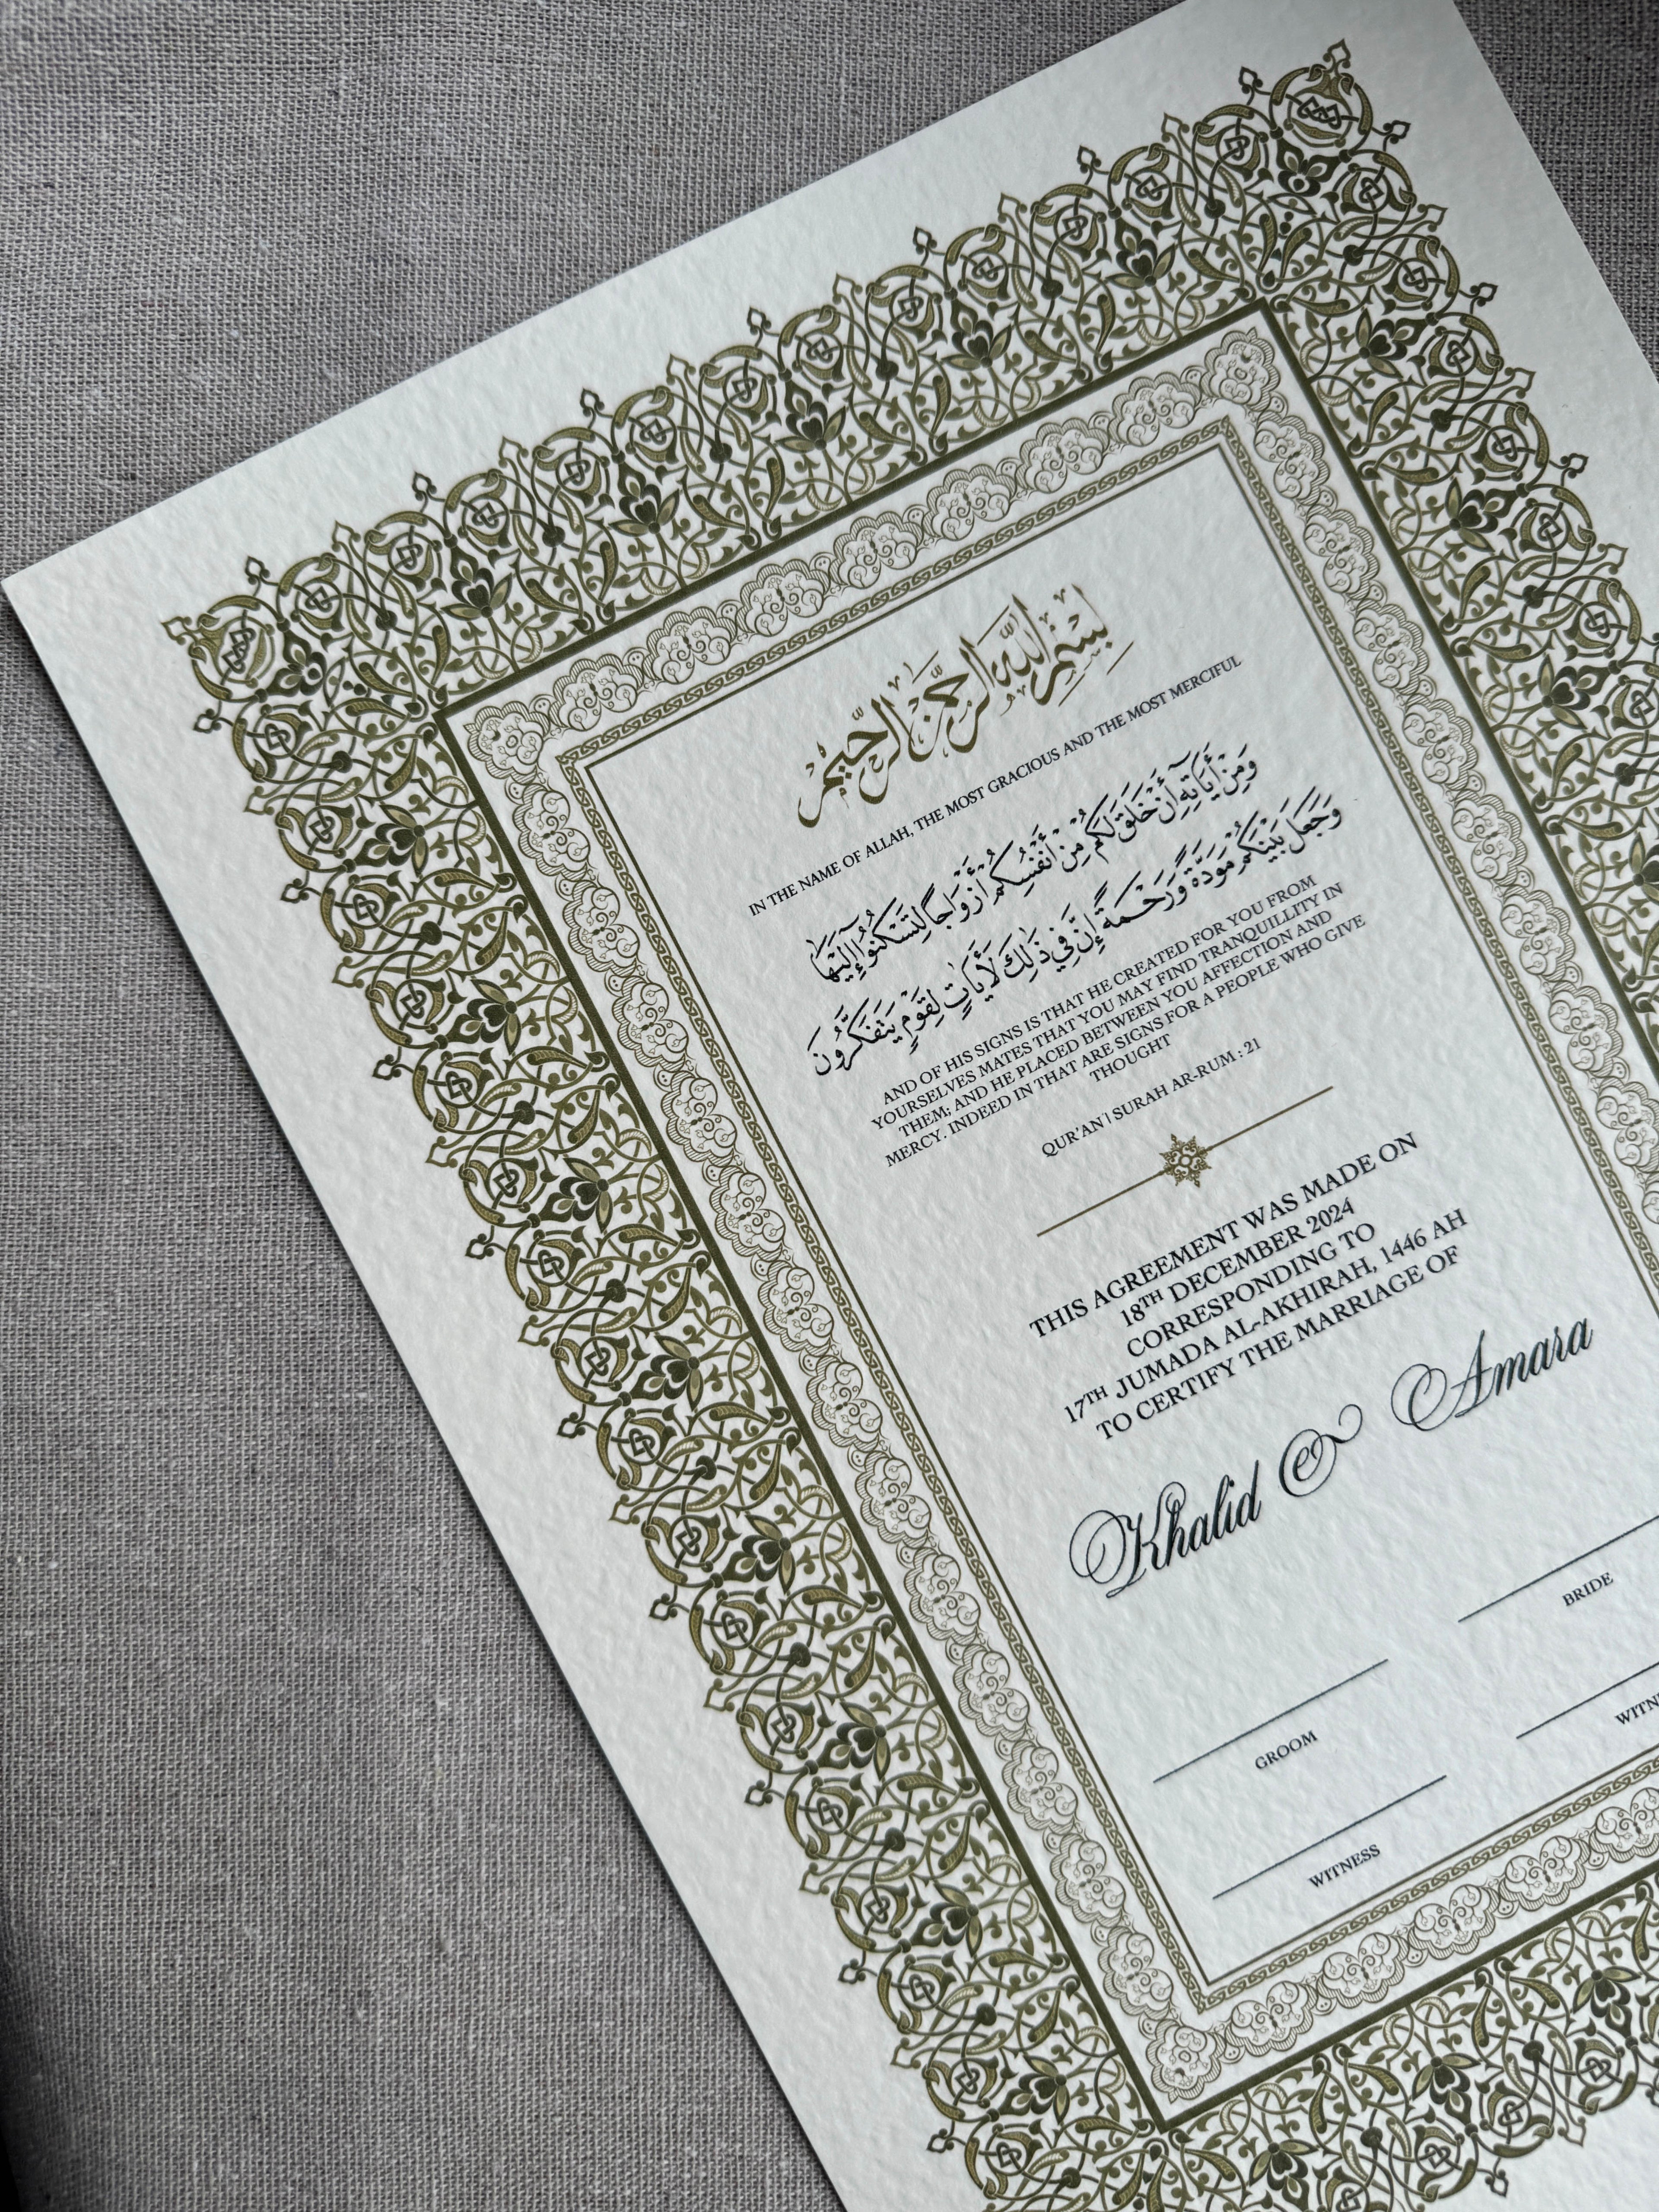 بِسْمِ اللهِ الرَّحْمٰنِ الرَّحِيْمِ
IN THE NAME OF ALLAH, THE MOST GRACIOUS AND THE MOST MERCIFUL
وَمِنْ أَيَاتِهِ أَنْ خَلَقَ لَكُمْ مِنْ أَنْفُسِكُمْ أَزْوَاجًا لِتَسْكُنُوا إِلَيْهَا
وَجَعَلَ بَيْنَكُمْ مَوَدَّةً وَرَحْمَةً إِنَّ فِي ذَلِكَ لَأَيَاتٍ لِقَوْمٍ يَتَفَكَّرُونَ
AND OF HIS SIGNS IS THAT HE CREATED FOR YOU FROM
YOURSELVES MATES THAT YOU MAY FIND TRANQUILLITY IN
THEM; AND HE PLACED BETWEEN YOU AFFECTION AND
MERCY. INDEED IN THAT ARE SIGNS FOR A PEOPLE WHO GIVE
THOUGHT
QUR'AN | SURAH AR-RUM : 21
THIS AGREEMENT WAS MADE ON
18TH DECEMBER 2024
CORRESPONDING TO
17TH JUMADA AL-AKHIRAH, 1446 AH
TO CERTIFY THE MARRIAGE OF
Khalid & Amara
GROOM
BRIDE
WITNESS